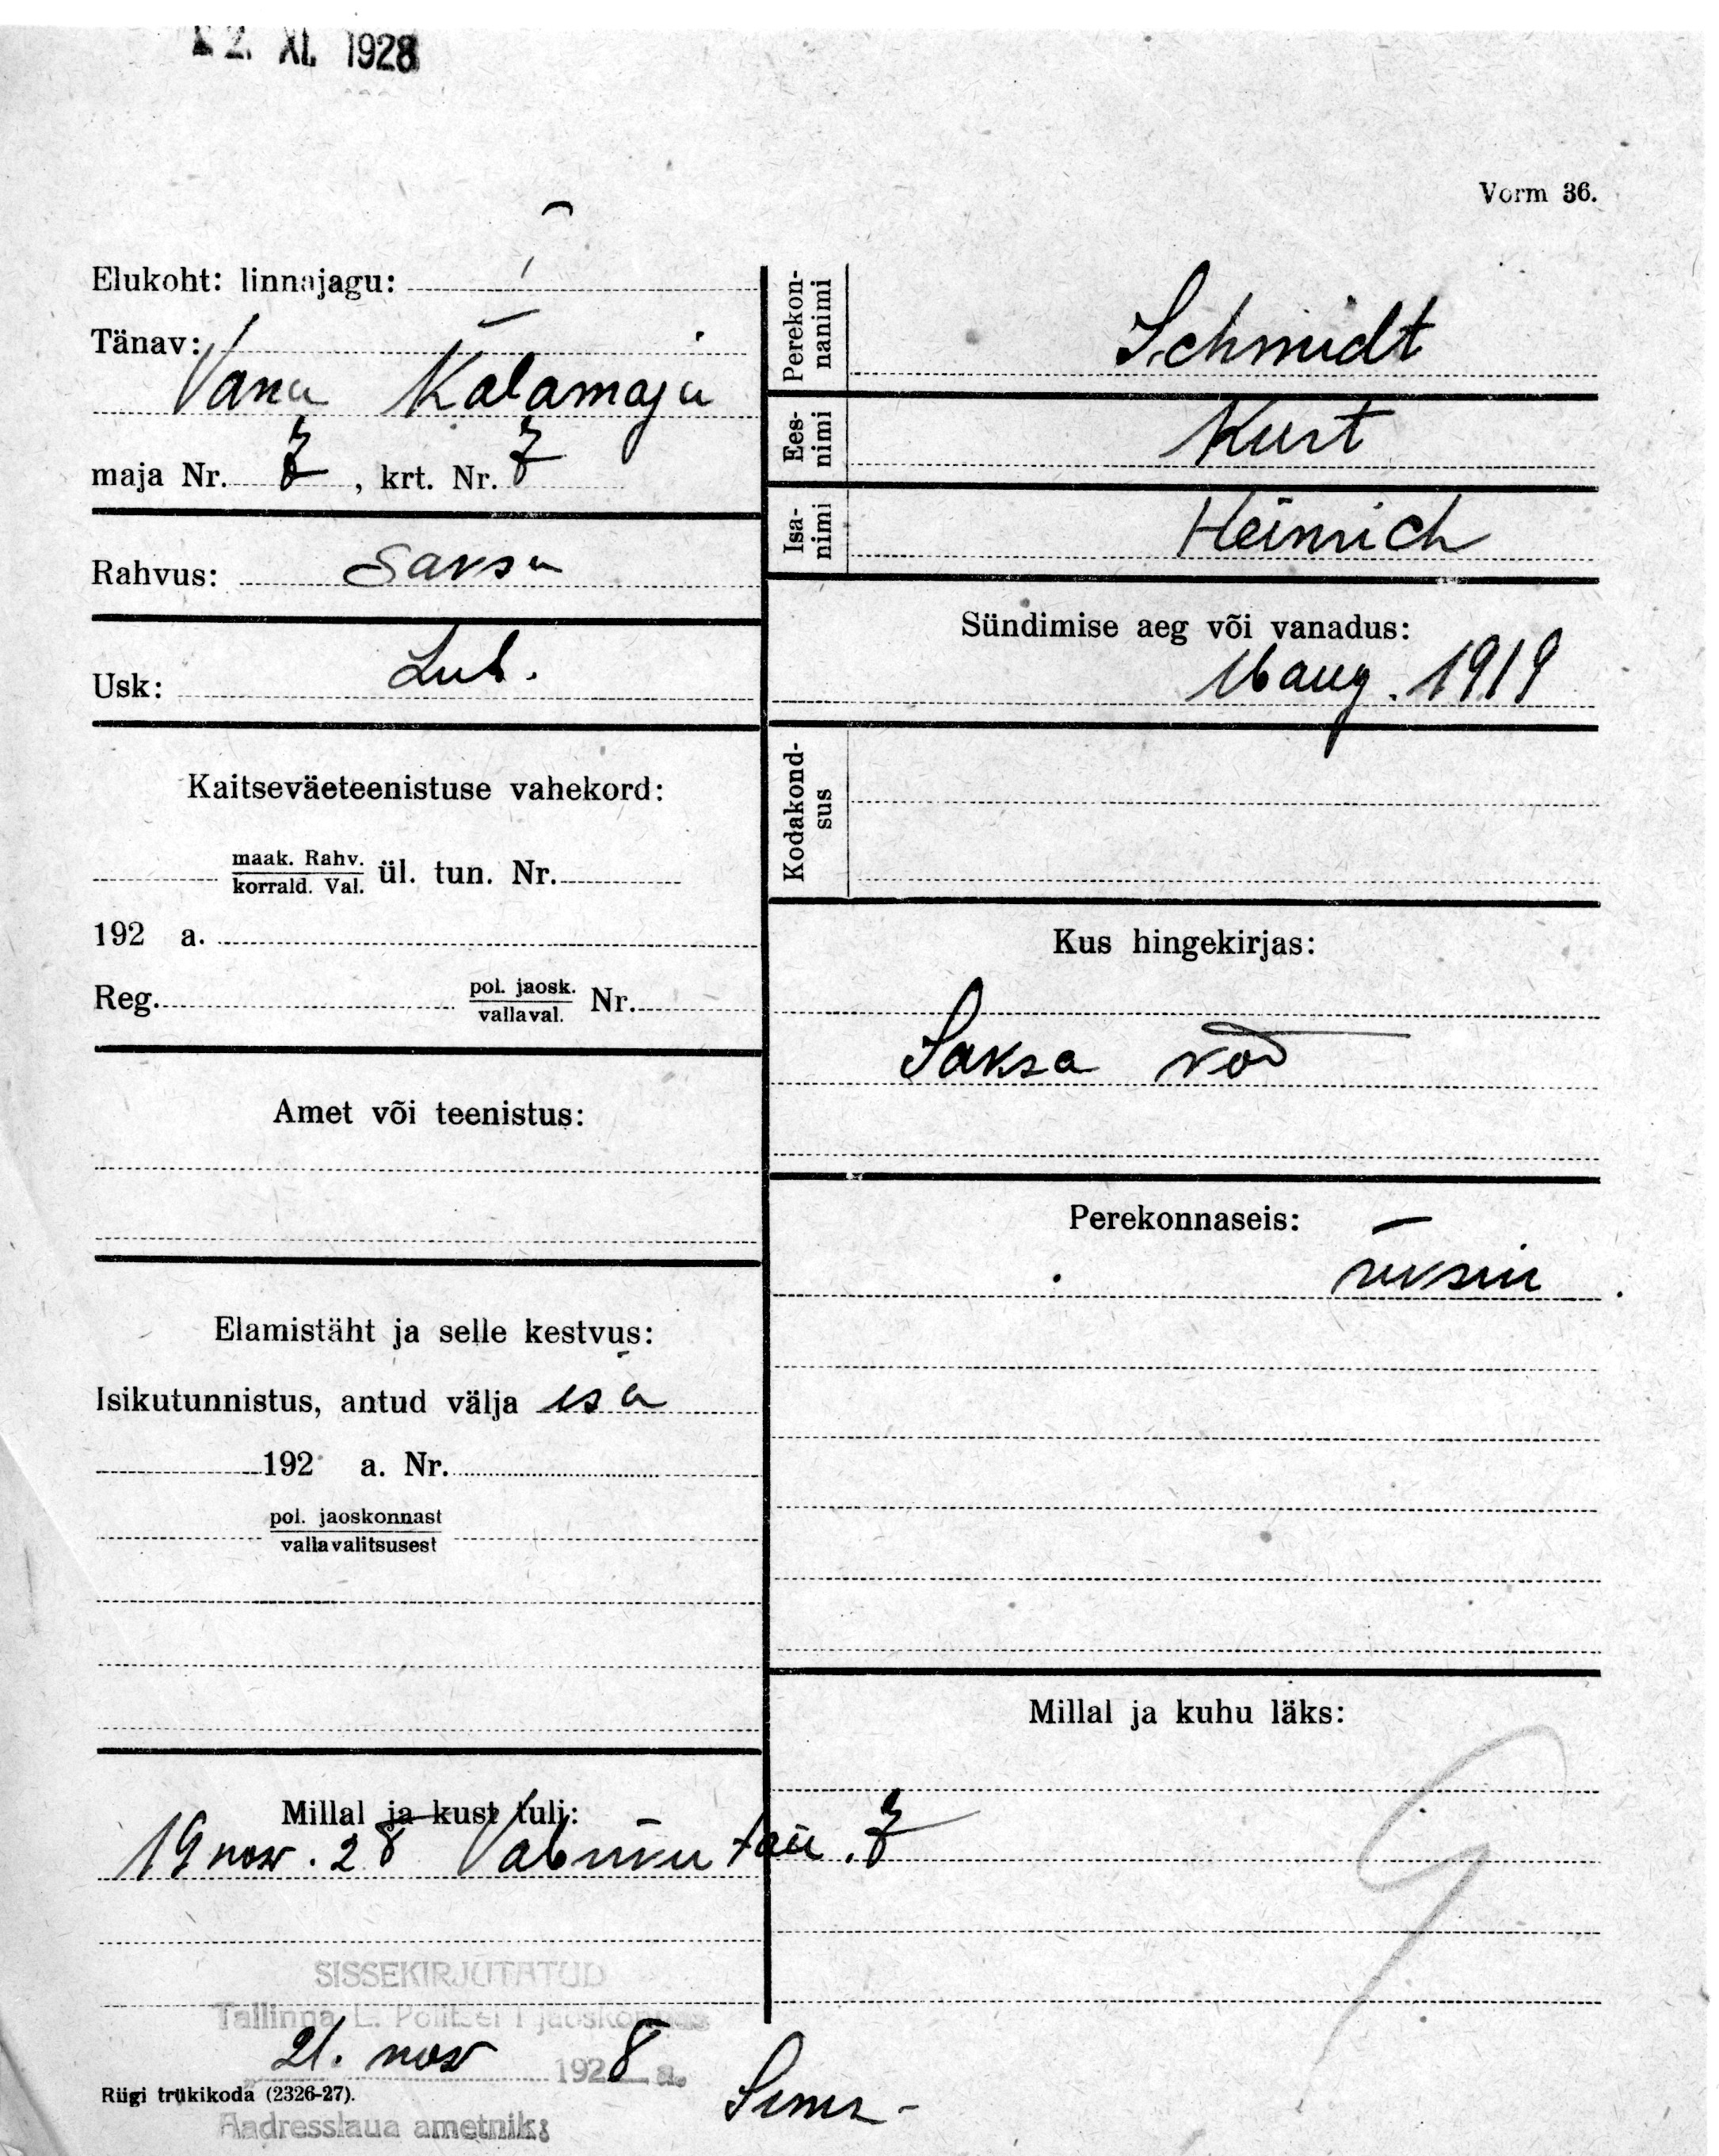 2. XI. 1928
Vorm 36.
Elukoht: linnajagu:
Tänav:
Vana Kalamaja
maja Nr. 7, krt. Nr. 7
Rahvus: Saksa
Usk: Lut.
Kaitseväeteenistuse vahekord:
maak. Rahv.
korrald. Val.
ül. tun. Nr.
192 a.
Reg. pol. jaosk. Nr.
vallaval.
Amet või teenistus:
Elamistäht ja selle kestvus:
Isikutunnistus, antud välja isa
192 a. Nr.
pol. jaoskonnast
vallavalitsusest
Millal ja kust tuli:
19 nov. 28 Vabriku tän. 7
SISSEKIRJUTATUD
Tallinna L. Politsei I jaoskonnas
21. nov 1928 a.
Riigi trükikoda (2326-27).
Aadresslaua ametnik:
Perekon-
nanimi
Schmidt
Ees-
nimi
Kurt
Isa-
nimi
Heinrich
Sündimise aeg või vanadus:
16 aug. 1919
Kodakond-
sus
Kus hingekirjas:
Saksa kod
Perekonnaseis:
üksik
Millal ja kuhu läks: